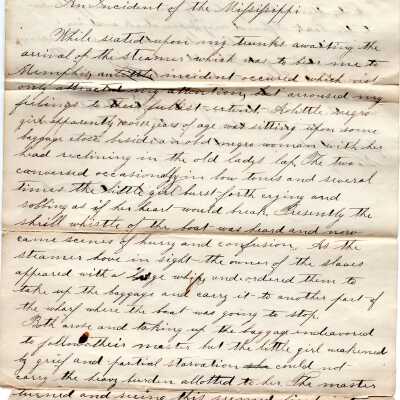 An Incident of the Mississippi
While seated upon my trunks awaiting the
arrival of the steamer which was to bear me to
Memphis, an little incident occured which not
only attracted my attention, but aroused my
feelings to their fullest extent. A little negro
girl apparently years of age was sitting upon some
baggage close beside an old negro woman with her
head reclining in the old ladys lap. The two
conversed occasionally in low tones and several
times the little girl burst forth crying and
sobbing as if her heart would break. Presently the
shrill whistle of the boat was heard and now
came scenes of hurry and confusion. As the
steamer hove in sight the owner of the slaves
appeared with a large whip and ordered them to
take up the baggage and carry it to another part of
the wharf where the boat was going to stop.
Both arose and taking up the baggage endeavored
to follow their master but the little girl weakened
by grief and partial starvation could not
carry the heavy burden allotted to her. The master
turned and seeing this seemed